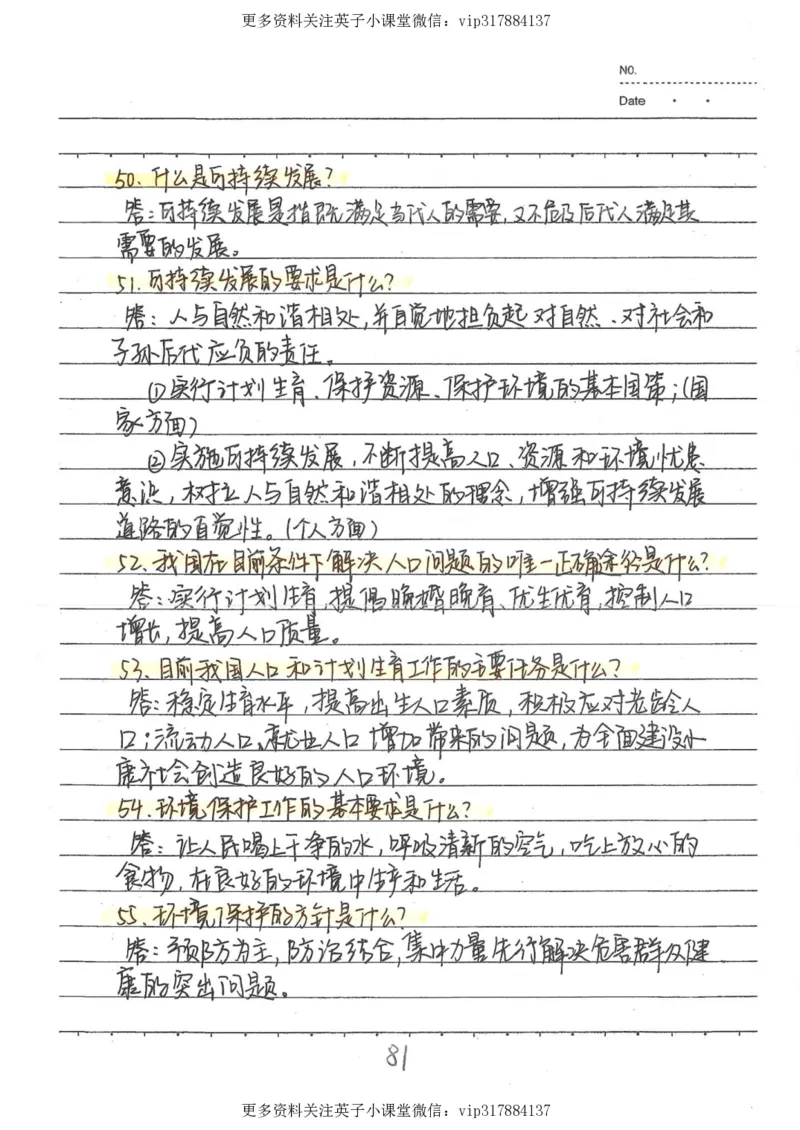 更多资料关注英子小课堂微信：vip317884137
NO.
Date
50. 什么是可持续发展？
答：可持续发展是指既满足当代人的需要，又不危及后代人满足其
需要的发展。
51. 可持续发展的要求是什么？
答：人与自然和谐相处，并自觉地担负起对自然、对社会和
子孙后代应负的责任。
①实行计划生育、保护资源、保护环境的基本国策；（国
家方面）
②实施可持续发展，不断提高人口、资源和环境忧患
意识，树立人与自然和谐相处的理念，增强可持续发展
道路的自觉性。（个人方面）
52. 我国在目前条件下解决人口问题的唯一正确途径是什么？
答：实行计划生育，提倡晚婚晚育、优生优育，控制人口
增长，提高人口质量。
53. 目前我国人口和计划生育工作的主要任务是什么？
答：稳定生育水平，提高出生人口素质，积极应对老龄人
口；流动人口、就业人口增加带来的问题，为全面建设小
康社会创造良好的人口环境。
54. 环境保护工作的基本要求是什么？
答：让人民喝上干净的水，呼吸清新的空气，吃上放心的
食物，在良好的环境中生产和生活。
55. 环境保护的方针是什么？
答：预防为主，防治结合，集中力量先行解决危害群众健
康的突出问题。
81
更多资料关注英子小课堂微信：vip317884137